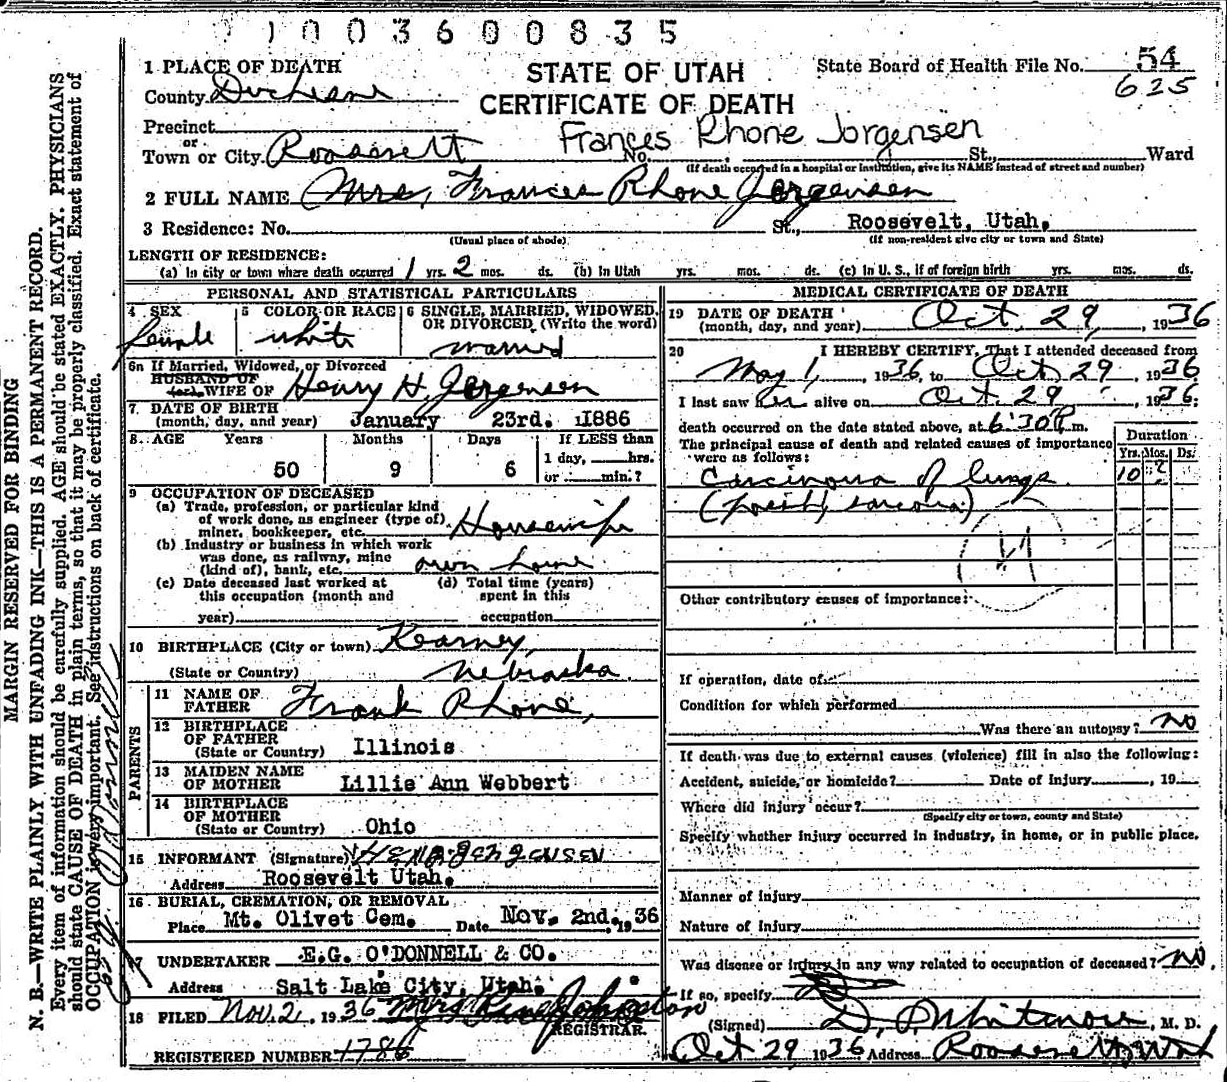 21003600835
1 PLACE OF DEATH
STATE OF UTAH
State Board of Health File No. 54
County Duchesne
CERTIFICATE OF DEATH
625
Precinct
or
Frances Rhone Jorgensen
Town or City Roosevelt No. St., Ward
(If death occurred in a hospital or institution, give its NAME instead of street and number)
2 FULL NAME Mrs, Frances Rhone Jorgensen
3 Residence: No. St., Roosevelt, Utah.
(Usual place of abode) (If non-resident give city or town and State)
LENGTH OF RESIDENCE:
(a) In city or town where death occurred 1 yrs. 2 mos. ds. (b) In Utah yrs. mos. ds. (c) In U. S., if of foreign birth yrs. mos. ds.
PERSONAL AND STATISTICAL PARTICULARS
4 SEX 5 COLOR OR RACE 6 SINGLE, MARRIED, WIDOWED, OR DIVORCED (Write the word)
female white married
6a If Married, Widowed, or Divorced
HUSBAND OF
(or) WIFE OF Henry H. Jorgensen
7. DATE OF BIRTH
(month, day, and year) January 23rd. 1886
8. AGE Years Months Days If LESS than
50 9 6 1 day, hrs.
or min.?
9 OCCUPATION OF DECEASED
(a) Trade, profession, or particular kind
of work done, as engineer (type of)
miner, bookkeeper, etc. Housewife
(b) Industry or business in which work
was done, as railway, mine
(kind of), bank, etc. own home
(c) Date deceased last worked at
this occupation (month and
year)
(d) Total time (years)
spent in this
occupation
10 BIRTHPLACE (City or town) Kearney,
(State or Country) Nebraska
PARENTS
11 NAME OF
FATHER Frank Rhone,
12 BIRTHPLACE
OF FATHER
(State or Country) Illinois
13 MAIDEN NAME
OF MOTHER Lillie Ann Webbert
14 BIRTHPLACE
OF MOTHER
(State or Country) Ohio
15 INFORMANT (Signature)
Address Roosevelt Utah.
16 BURIAL, CREMATION, OR REMOVAL
Place Mt. Olivet Cem. Date Nov. 2nd. 1936
17 UNDERTAKER E.G. O'DONNELL & CO.
Address Salt Lake City, Utah.
18 FILED Nov. 2, 1936 Mrs Johnston
REGISTRAR.
REGISTERED NUMBER 1786
MEDICAL CERTIFICATE OF DEATH
19 DATE OF DEATH
(month, day, and year) Oct. 29, 1936
20 I HEREBY CERTIFY, That I attended deceased from
May 1, 1936, to Oct 29, 1936
I last saw her alive on Oct. 29, 1936;
death occurred on the date stated above, at 6:30 P m.
The principal cause of death and related causes of importance
were as follows:
Duration
Yrs. Mos. Ds.
Carcinoma of lungs 10 ?
Other contributory causes of importance:
If operation, date of
Condition for which performed
Was there an autopsy? no
If death was due to external causes (violence) fill in also the following:
Accident, suicide, or homicide? Date of Injury , 19
Where did injury occur?
(Specify city or town, county and State)
Specify whether injury occurred in industry, in home, or in public place.
Manner of injury
Nature of injury
Was disease or injury in any way related to occupation of deceased? no.
If so, specify
(Signed) D. P. Whitmore, M. D.
Oct 29 1936 Address Roosevelt, Utah
MARGIN RESERVED FOR BINDING
N. B.—WRITE PLAINLY WITH UNFADING INK—THIS IS A PERMANENT RECORD.
Every item of information should be carefully supplied. AGE should be stated EXACTLY. PHYSICIANS
should state CAUSE OF DEATH in plain terms, so that it may be properly classified. Exact statement of
OCCUPATION is very important. See instructions on back of certificate.